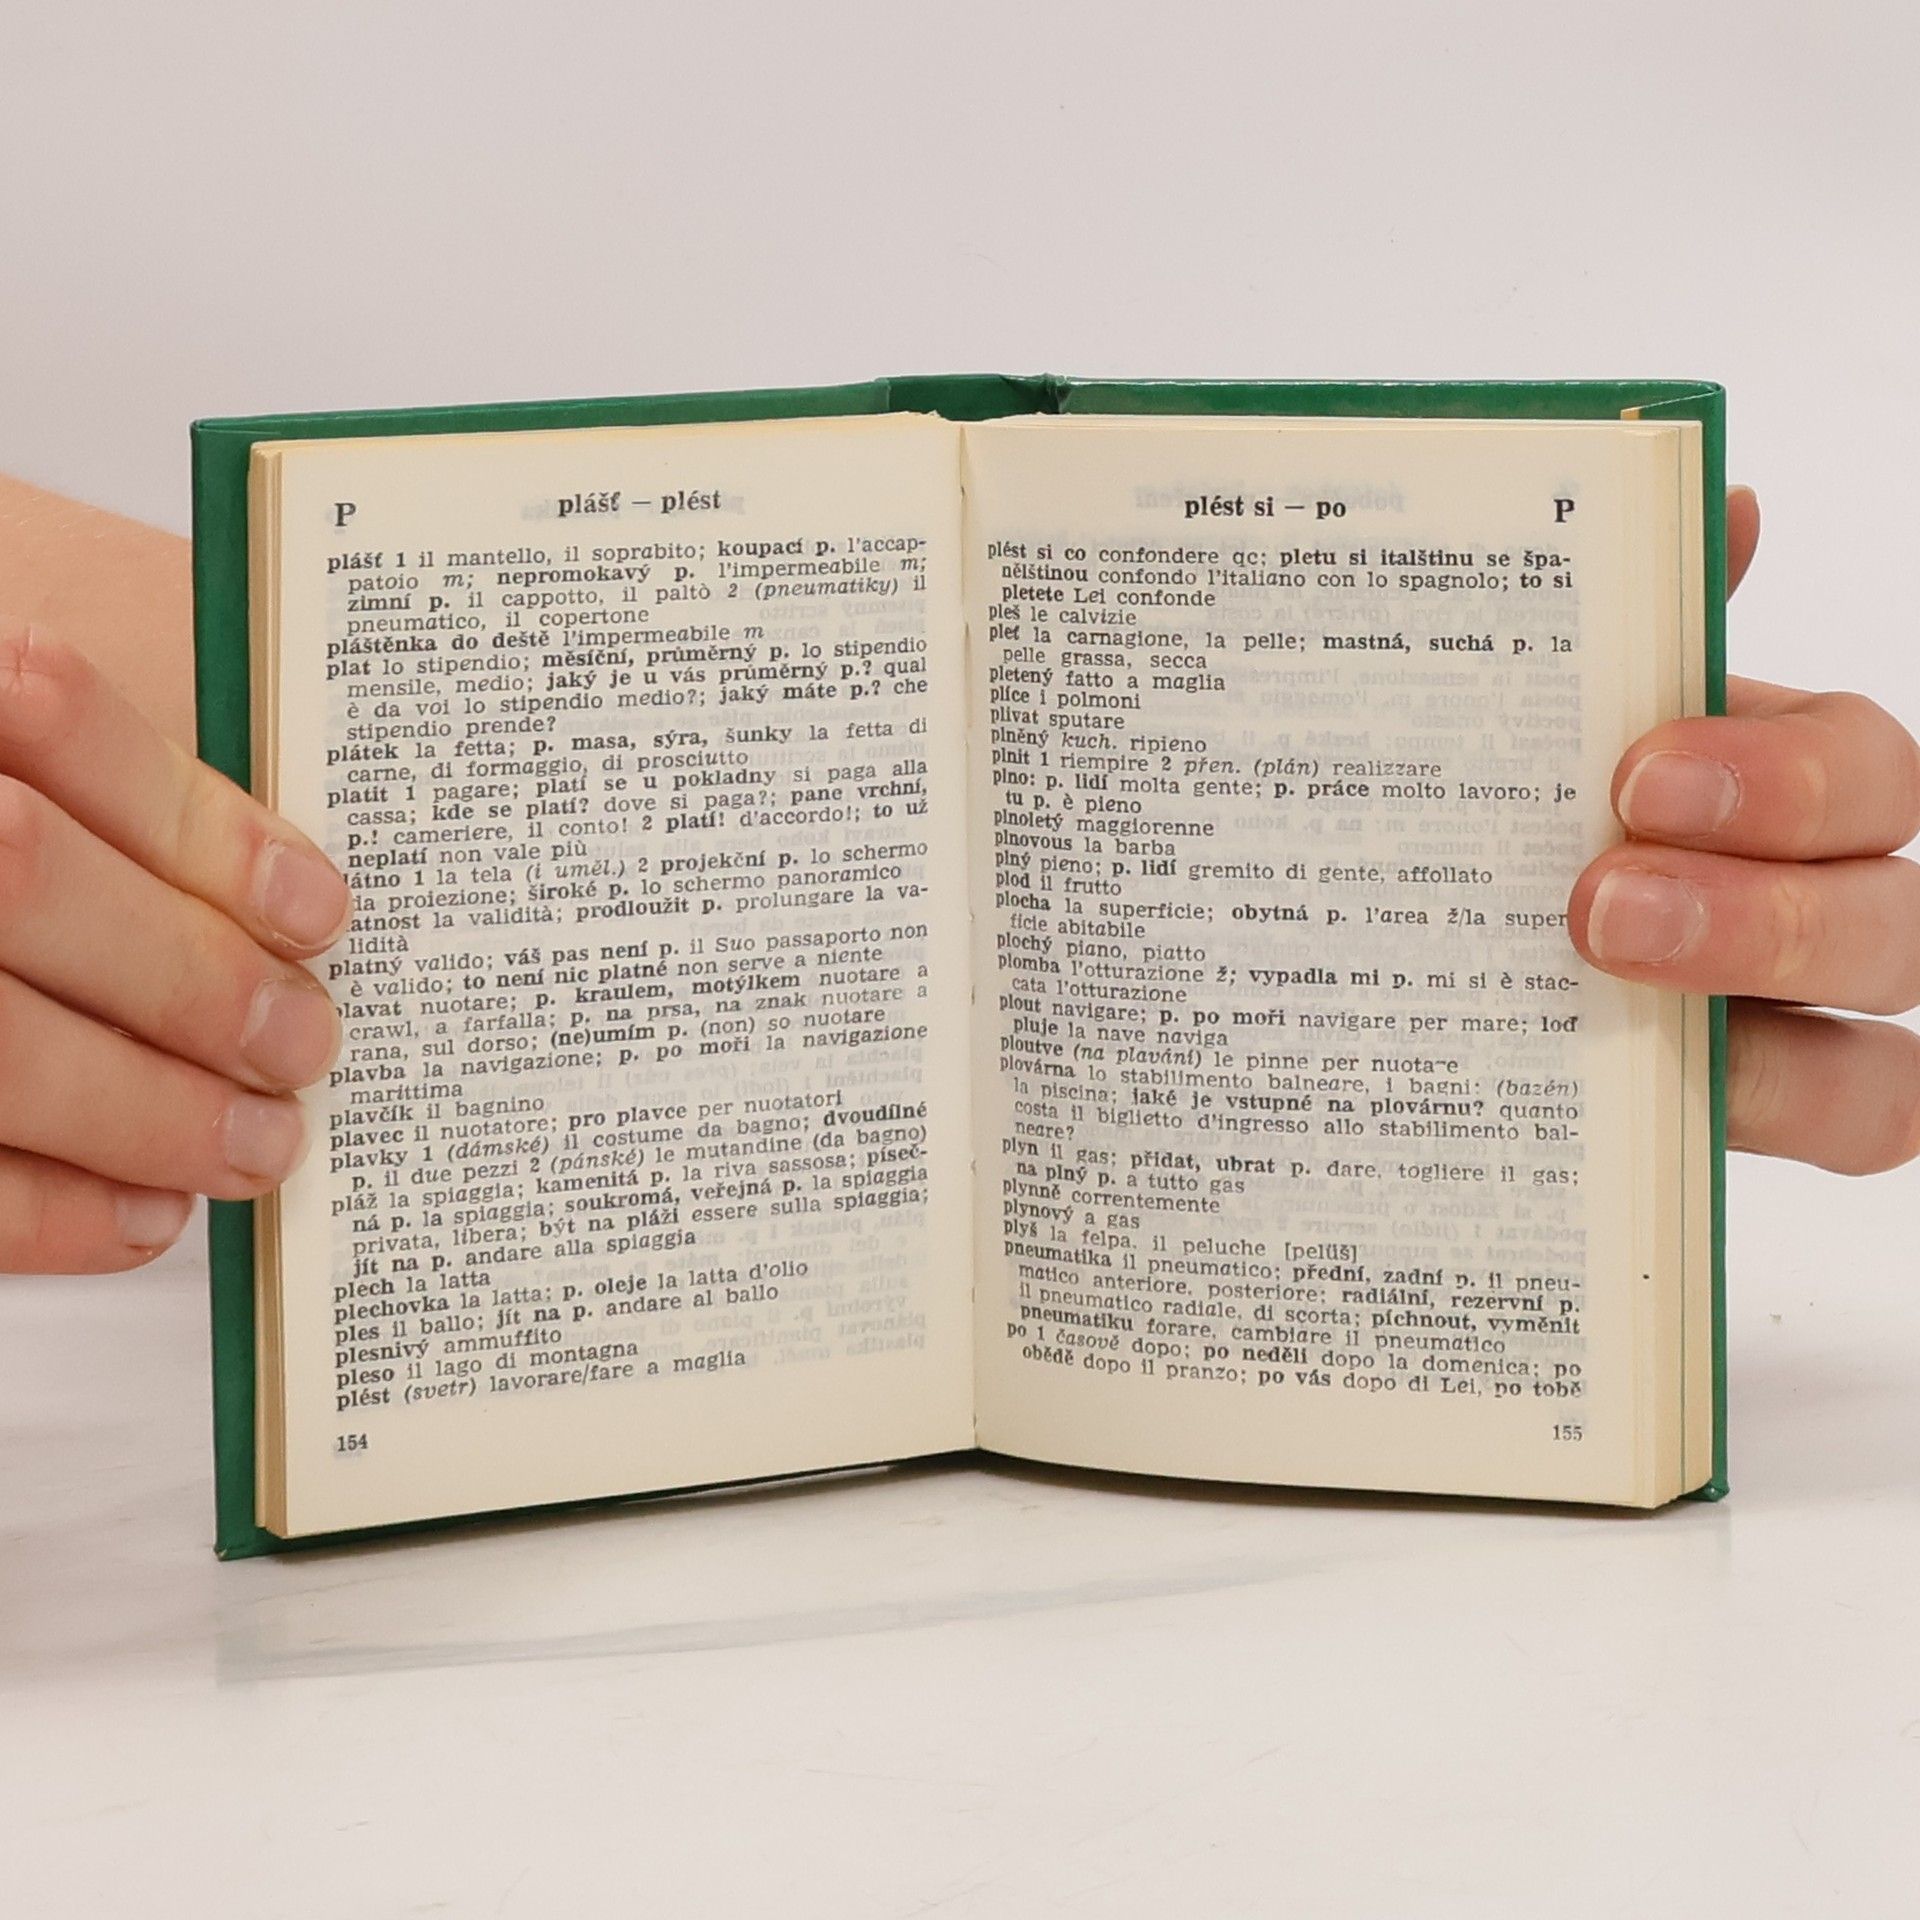 P plášť — plést
plášť 1 il mantello, il soprabito; koupací p. l'accap-
patoio m; nepromokavý p. l'impermeabile m;
zimní p. il cappotto, il paltò 2 (pneumatiky) il
pneumatico, il copertone
pláštěnka do deště l'impermeabile m
plat lo stipendio; měsíční, průměrný p. lo stipendio
mensile, medio; jaký je u vás průměrný p.? qual
è da voi lo stipendio medio?; jaký máte p.? che
stipendio prende?
plátek la fetta; p. masa, sýra, šunky la fetta di
carne, di formaggio, di prosciutto
platit 1 pagare; platí se u pokladny si paga alla
cassa; kde se platí? dove si paga?; pane vrchní,
p.! cameriere, il conto! 2 platí! d'accordo!; to už
neplatí non vale più
látno 1 la tela (i uměl.) 2 projekční p. lo schermo
da proiezione; široké p. lo schermo panoramico
atnost la validità; prodloužit p. prolungare la va-
lidità
platný valido; váš pas není p. il Suo passaporto non
è valido; to není nic platné non serve a niente
lavat nuotare; p. kraulem, motýlkem nuotare a
crawl, a farfalla; p. na prsa, na znak nuotare a
rana, sul dorso; (ne)umím p. (non) so nuotare
plavba la navigazione; p. po moři la navigazione
marittima
plavčík il bagnino
plavec il nuotatore; pro plavce per nuotatori
plavky 1 (dámské) il costume da bagno; dvoudílné
p. il due pezzi 2 (pánské) le mutandine (da bagno)
pláž la spiaggia; kamenitá p. la riva sassosa; píseč-
ná p. la spiaggia; soukromá, veřejná p. la spiaggia
privata, libera; být na pláži essere sulla spiaggia;
jít na p. andare alla spiaggia
plech la latta
plechovka la latta; p. oleje la latta d'olio
ples il ballo; jít na p. andare al ballo
plesnivý ammuffito
pleso il lago di montagna
plést (svetr) lavorare/fare a maglia
154
plést si — po P
plést si co confondere qc; pletu si italštinu se špa-
nělštinou confondo l'italiano con lo spagnolo; to si
pletete Lei confonde
pleš le calvizie
pleť la carnagione, la pelle; mastná, suchá p. la
pelle grassa, secca
pletený fatto a maglia
plíce i polmoni
plivat sputare
plněný kuch. ripieno
plnit 1 riempire 2 přen. (plán) realizzare
plno: p. lidí molta gente; p. práce molto lavoro; je
tu p. è pieno
plnoletý maggiorenne
plnovous la barba
plný pieno; p. lidí gremito di gente, affollato
plod il frutto
plocha la superficie; obytná p. l'area ž/la super
ficie abitabile
plochý piano, piatto
plomba l'otturazione ž; vypadla mi p. mi si è stac-
cata l'otturazione
plout navigare; p. po moři navigare per mare; loď
pluje la nave naviga
ploutve (na plavání) le pinne per nuotare
plovárna lo stabilimento balneare, i bagni: (bazén)
la piscina; jaké je vstupné na plovárnu? quanto
costa il biglietto d'ingresso allo stabilimento bal-
neare?
plyn il gas; přidat, ubrat p. dare, togliere il gas;
na plný p. a tutto gas
plynně correntemente
plynový a gas
plyš la felpa, il peluche [pelüš]
pneumatika il pneumatico; přední, zadní p. il pneu-
matico anteriore, posteriore; radiální, rezervní p.
il pneumatico radiale, di scorta; píchnout, vyměnit
pneumatiku forare, cambiare il pneumatico
po 1 časově dopo; po neděli dopo la domenica; po
obědě dopo il pranzo; po vás dopo di Lei, po tobě
155